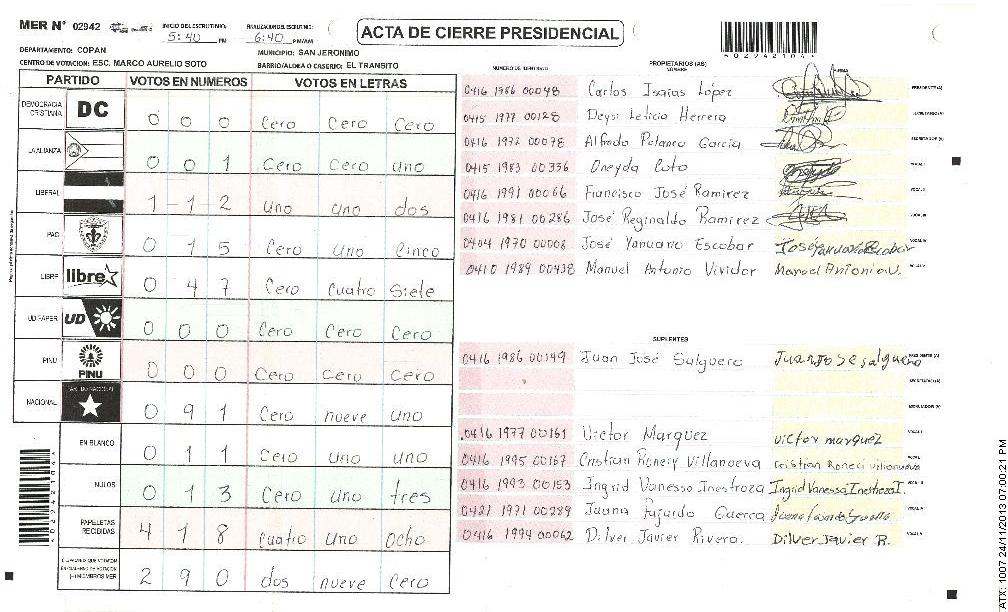 MER N° 02942
INICIO DEL ESCRUTINIO: 5:40 PM
FINALIZACION DEL ESCRUTINIO: 6:40 PM/AM
ACTA DE CIERRE PRESIDENCIAL
DEPARTAMENTO: COPAN
MUNICIPIO: SAN JERONIMO
CENTRO DE VOTACION: ESC. MARCO AURELIO SOTO
BARRIO/ALDEA O CASERIO: EL TRANSITO
PARTIDO VOTOS EN NUMEROS VOTOS EN LETRAS
DEMOCRACIA CRISTIANA DC 0 0 0 Cero Cero Cero
LA ALIANZA 0 0 1 Cero Cero uno
LIBERAL 1 - 1 - 2 uno uno dos
PAC 0 1 5 Cero uno Cinco
LIBRE libre 0 4 7 Cero cuatro Siete
UD FAPER UD 0 0 0 Cero Cero Cero
PINU PINU 0 0 0 Cero Cero Cero
NACIONAL 0 9 1 Cero nueve uno
EN BLANCO 0 1 1 Cero uno uno
NULOS 0 1 3 Cero uno tres
PAPELETAS RECIBIDAS 4 1 8 Cuatro uno Ocho
2 9 0 dos nueve Cero
NUMERO DE IDENTIDAD PROPIETARIOS (AS) NOMBRE FIRMA
0416 1986 00048 Carlos Isaias López PRESIDENTE (A)
0415 1977 00128 Deysi Leticia Herrera SECRETARIO (A)
0416 1972 00078 Alfredo Polanco Garcia ESCRUTADOR (A)
0415 1983 00336 Oneyda Coto VOCAL I
0416 1991 00066 Francisco José Ramirez VOCAL II
0416 1981 00286 José Reginaldo Ramirez VOCAL III
0404 1970 00008 José Yanuario Escobar José Yanuario Escobar VOCAL IV
0410 1989 00438 Manuel Antonio Vividor Manoel Antonio V. VOCAL V
SUPLENTES
0416 1986 00149 Juan José Salguero Juan Jose salguero PRESIDENTE (A)
SECRETARIO (A)
ESCRUTADOR (A)
0416 1977 00161 Victor Marquez victor marquez VOCAL I
0416 1995 00167 Cristian Roneiy Villanueva cristian Roneci villanueva
0416 1993 00153 Ingrid Vanessa Inestroza Ingrid Vanessa Inestroza I.
0421 1971 00289 Juana Fajardo Guerra
0416 1994 00062 Dilver Javier Rivera Dilver Javier R. VOCAL V
4029421044
ATX: 1007 24/11/2013 07:00:21 PM